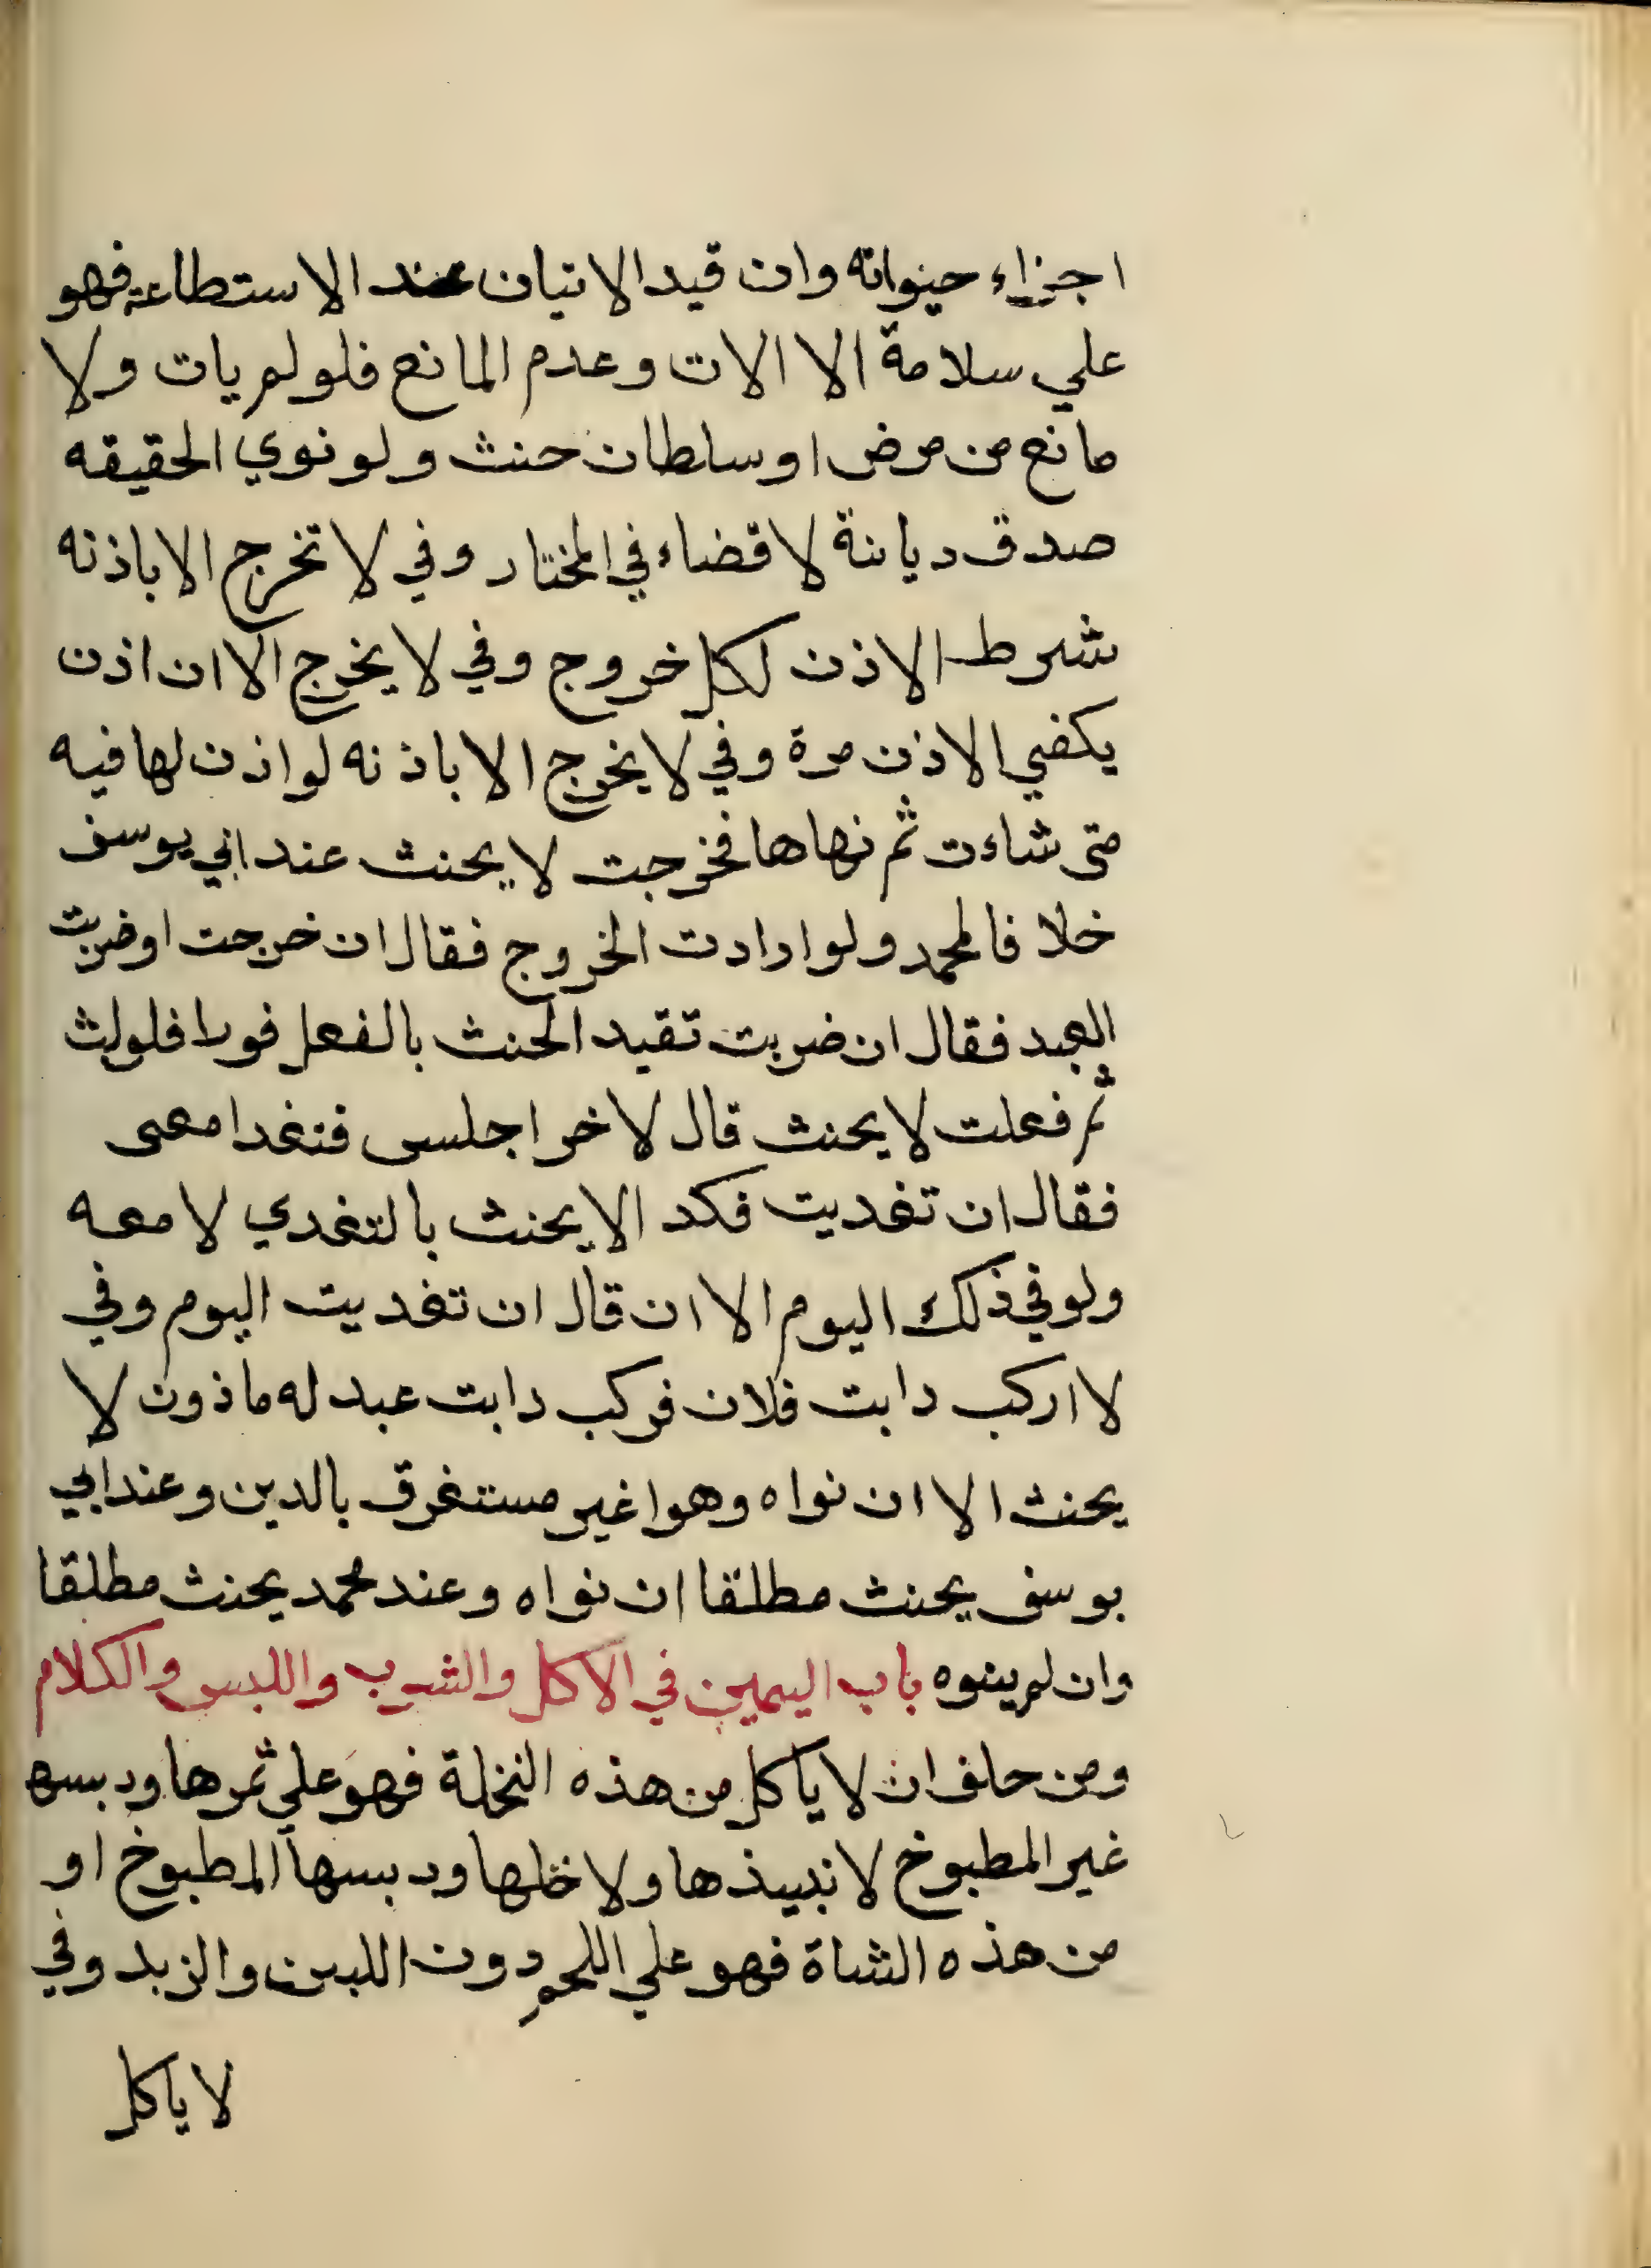 اجزاء حيواته وان قيد الاتيان عند الاستطاعة فهو
علي سلامة الا الات وعدم المانع فلو لم يات ولا
مانع من مرض او سلطان حنث ولو نوي الحقيقه
صدق ديانة لا قضاء في المختار وفي لا تخرج الا باذنه
شرط الاذن لكل خروج وفي لا يخرج الا ان اذن
يكفي الاذن مرة وفي لا يخرج الا باذنه لو اذن لها فيه
متى شاءت ثم نهاها فخرجت لا يحنث عند ابي يوسف
خلافا لمحمد ولو ارادت الخروج فقال ان خرجت او ضربت
العبد فقال ان ضربت تقيد الحنث بالفعل فورا فلو لبث
ثم فعلت لا يحنث قال لاخر اجلس فتغدا معى
فقال ان تغديت فكد الا يحنث بالتغدي لا معه
ولو في ذلك اليوم الا ان قال ان تغديت اليوم وفي
لا اركب دابت فلان فركب دابت عبد له ماذون لا
يحنث الا ان نواه وهوا غير مستغرق بالدين وعند ابي
يوسف يحنث مطلقا ان نواه وعند محمد يحنث مطلقا
وان لم ينوه باب اليمين في الاكل والشرب واللبس والكلام
ومن حلف ان لا ياكل من هذه النخلة فهو علي ثمرها ودبسها
غير المطبوخ لا نبيذها ولا خلها ودبسها المطبوخ او
من هذه الشاة فهو علي اللحم دون اللبن والزبد وفي
لا ياكل